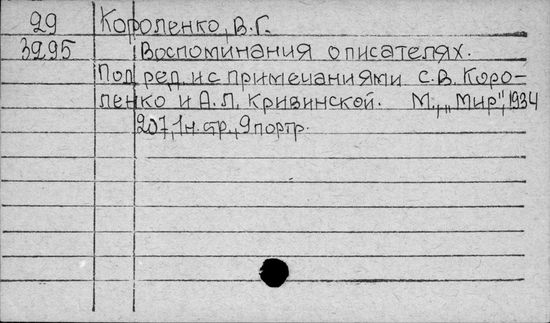 29 Короленко, В.Г.
3295 Воспоминания о писателях.
Под ред. и с примечаниями С.В. Коро-
ленко и А.Л. Кривинской. М., „Мир", 1934
207, 1 н. стр., 9 портр.